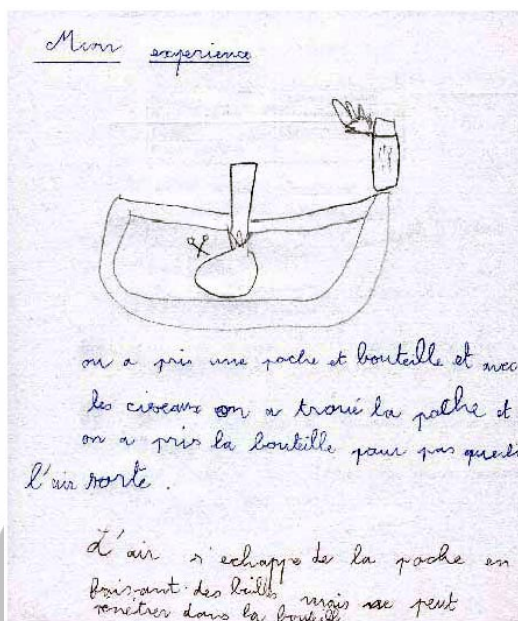 Mon experience
on a pris une poche et bouteille et avec
les ciseaux on a troué la poche et
on a pris la bouteille pour pas que
l'air sorte.
L'air s'echappe de la poche en
faisant des bulles mais ne peut
rentrer dans la